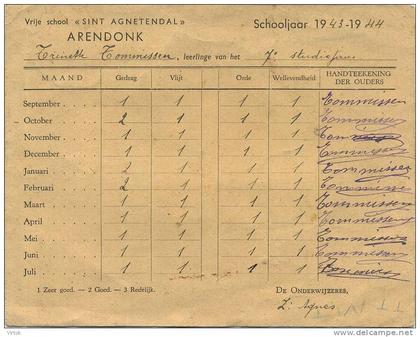 Vrije school «SINT AGNETENDAL»
ARENDONK
Schooljaar 1943-1944
Tommissen, leerlinge van het 7e studiejaar
MAAND Gedrag Vlijt Orde Wellevendheid HANDTEEKENING DER OUDERS
September 1 1 1 1 Tommissen
October 2 1 1 1 Tommissen
November 1 1 1 1 Tommissen
December 1 1 1 1 Tommissen
Januari 2 1 1 1 Tommissen
Februari 2 1 1 1 Tommissen
Maart 1 1 1 1 Tommissen
April 1 1 1 1 Tommissen
Mei 1 1 1 1 Tommissen
Juni 1 1 1 1 Tommissen
Juli 1 1 1 1
1 Zeer goed. — 2 Goed. — 3 Redelijk.
DE ONDERWIJZERES,
Z. Agnes
delcampe.net